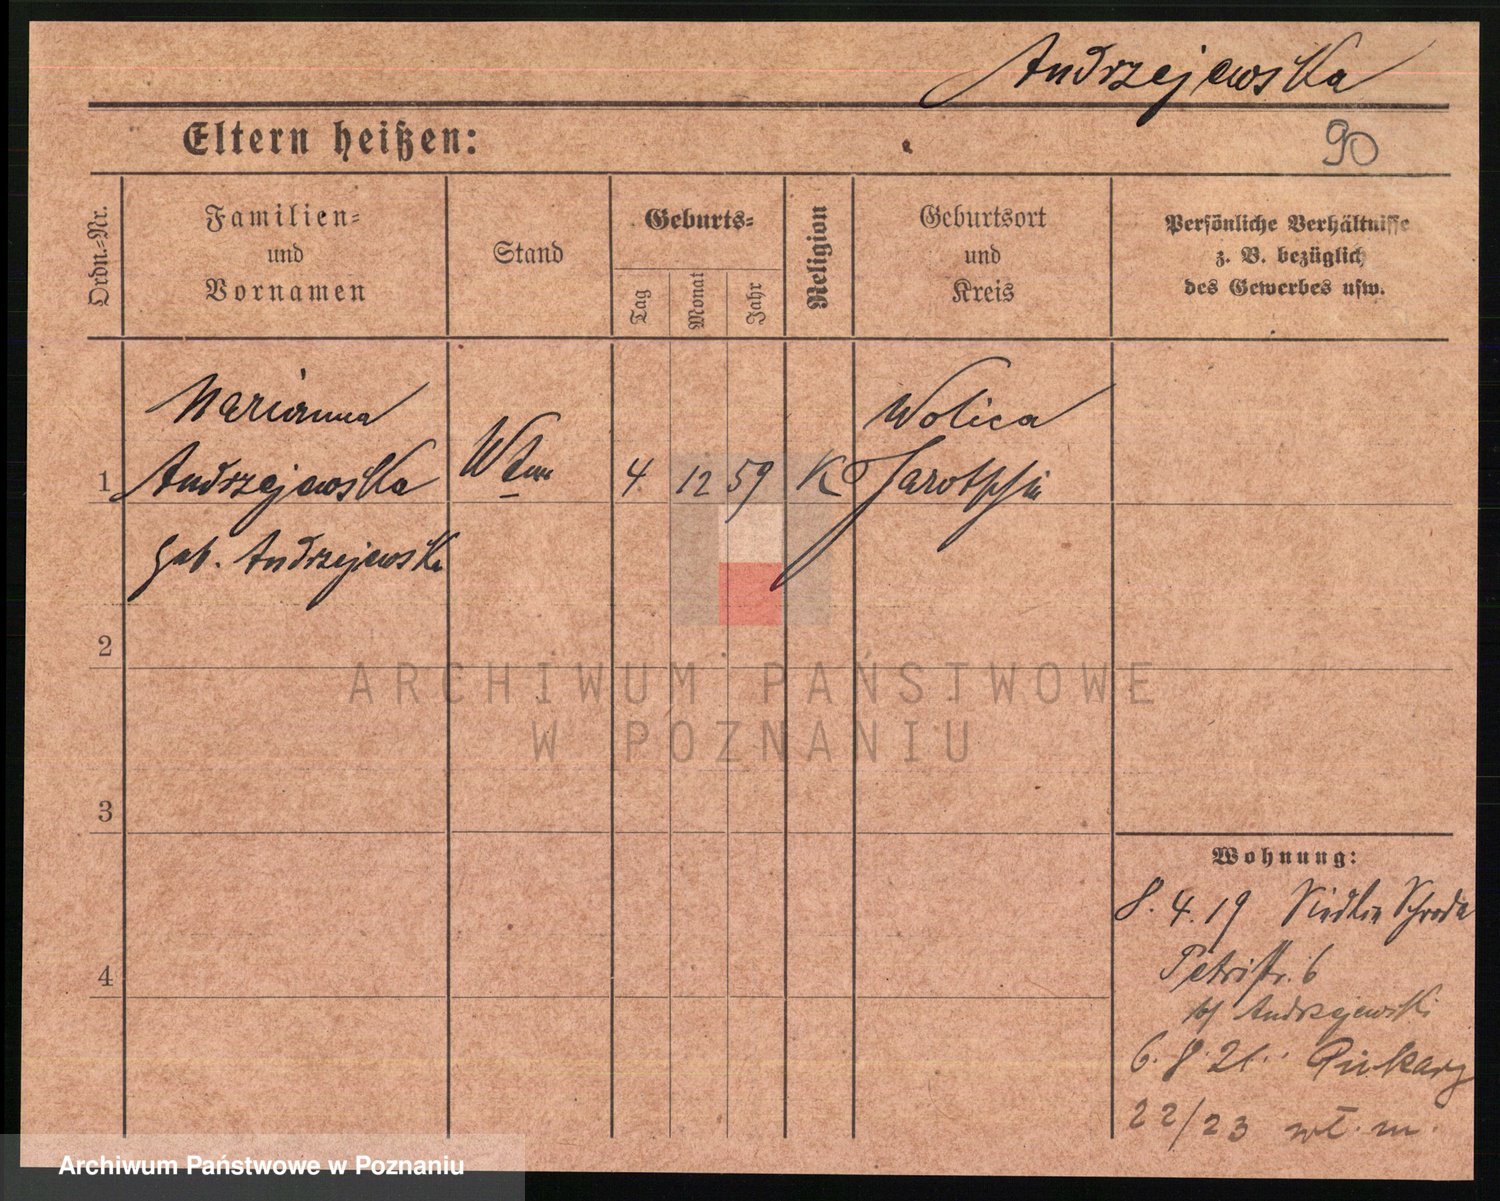 Andrzejewska
Eltern heißen:
90
Ordn.-Nr.
Familien-
und
Vornamen
Stand
Geburts-
Tag
Monat
Jahr
Religion
Geburtsort
und
Kreis
Persönliche Verhältnisse
z. B. bezüglich
des Gewerbes usw.
Marianna
Wolica
1 Andrzejewska Wwe 4 12 59 K Jarotschin
geb. Andrzejewska
2
ARCHIWUM PAŃSTWOWE
W POZNANIU
3
Wohnung:
8. 4. 19 Schroda
4
Petristr. 6
bei Andrzejewski
6. 8. 21. Piekary
22/23 wł. m.
Archiwum Państwowe w Poznaniu